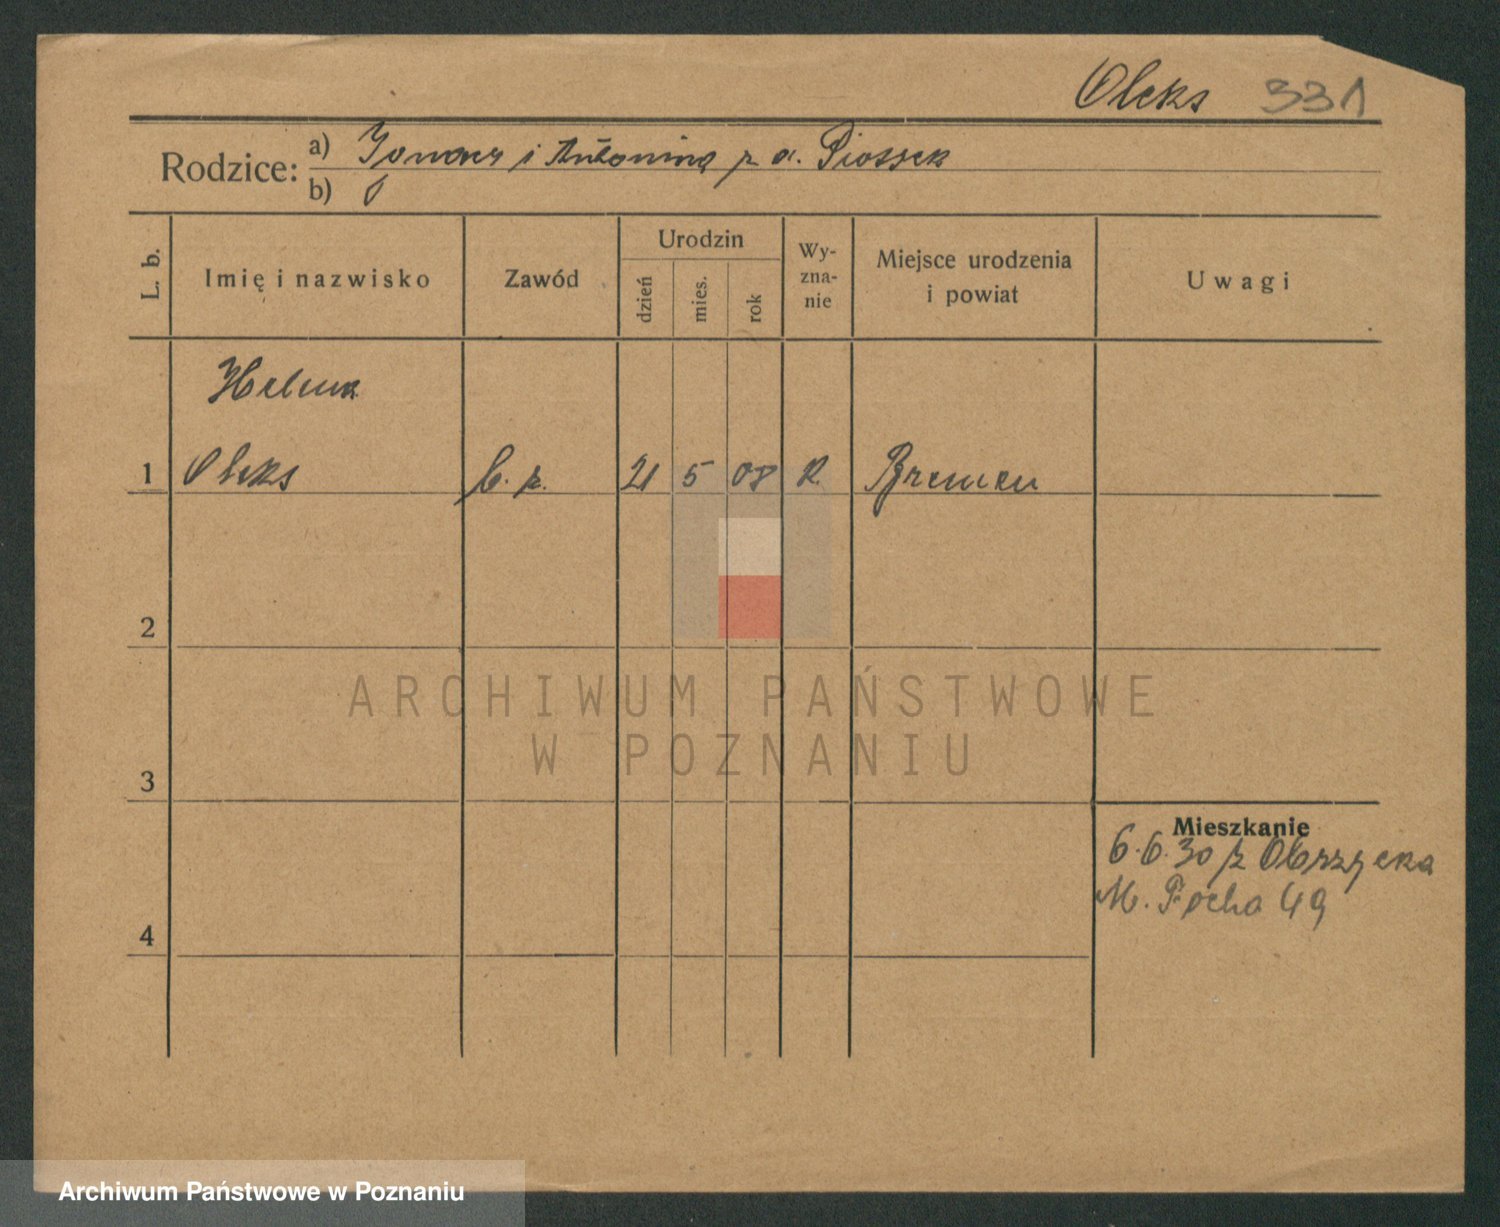 Oleks 331
Rodzice: a) Ignacy i Antonina z d. Piossek
b)
L. b.
Imię i nazwisko
Zawód
Urodzin
dzień
mies.
rok
Wy-
zna-
nie
Miejsce urodzenia
i powiat
Uwagi
Helena
1 Oleks b. z. 21 5 08 R. Bremen
2
3
4
Mieszkanie
6.6.30 z Obrzycka
M. Focha 49
ARCHIWUM PAŃSTWOWE
W POZNANIU
Archiwum Państwowe w Poznaniu